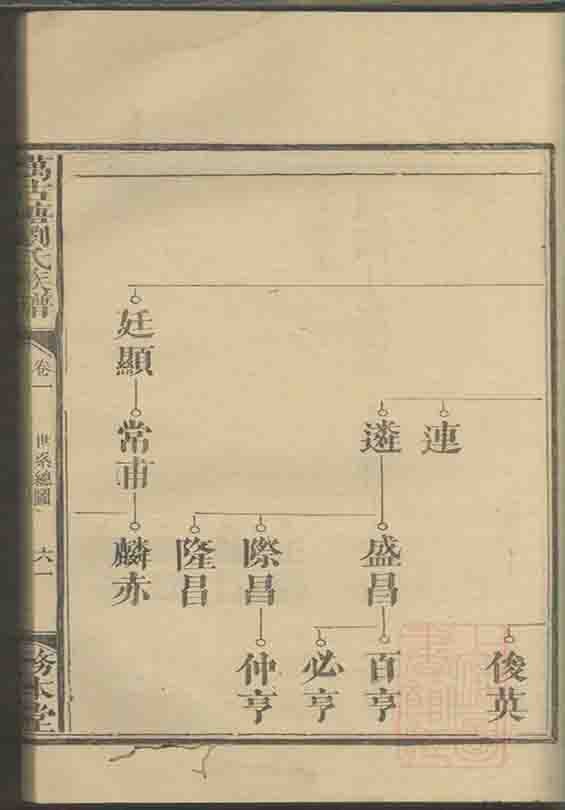 連
遴
盛昌
際昌
隆昌
俊英
百亨
必亨
仲亨
廷顯
常甫
麟赤
萬古塘劉氏族譜
卷一
世系總圖
六一
務本堂